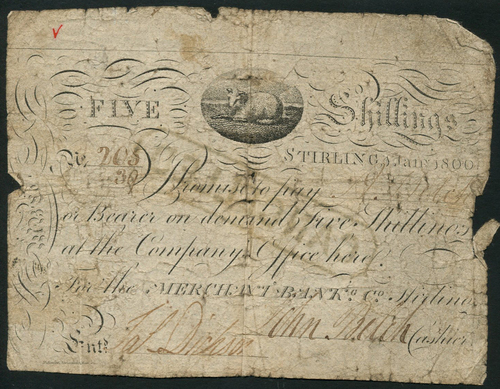 FIVE Shillings
STIRLING, Jany. 1800
No. 203
Promise to pay
or Bearer on demand Five Shillings
at the Company's Office here.
For the MERCHANT BANKg. Co. Stirling
Entd. Jas. Dickson John Cashier